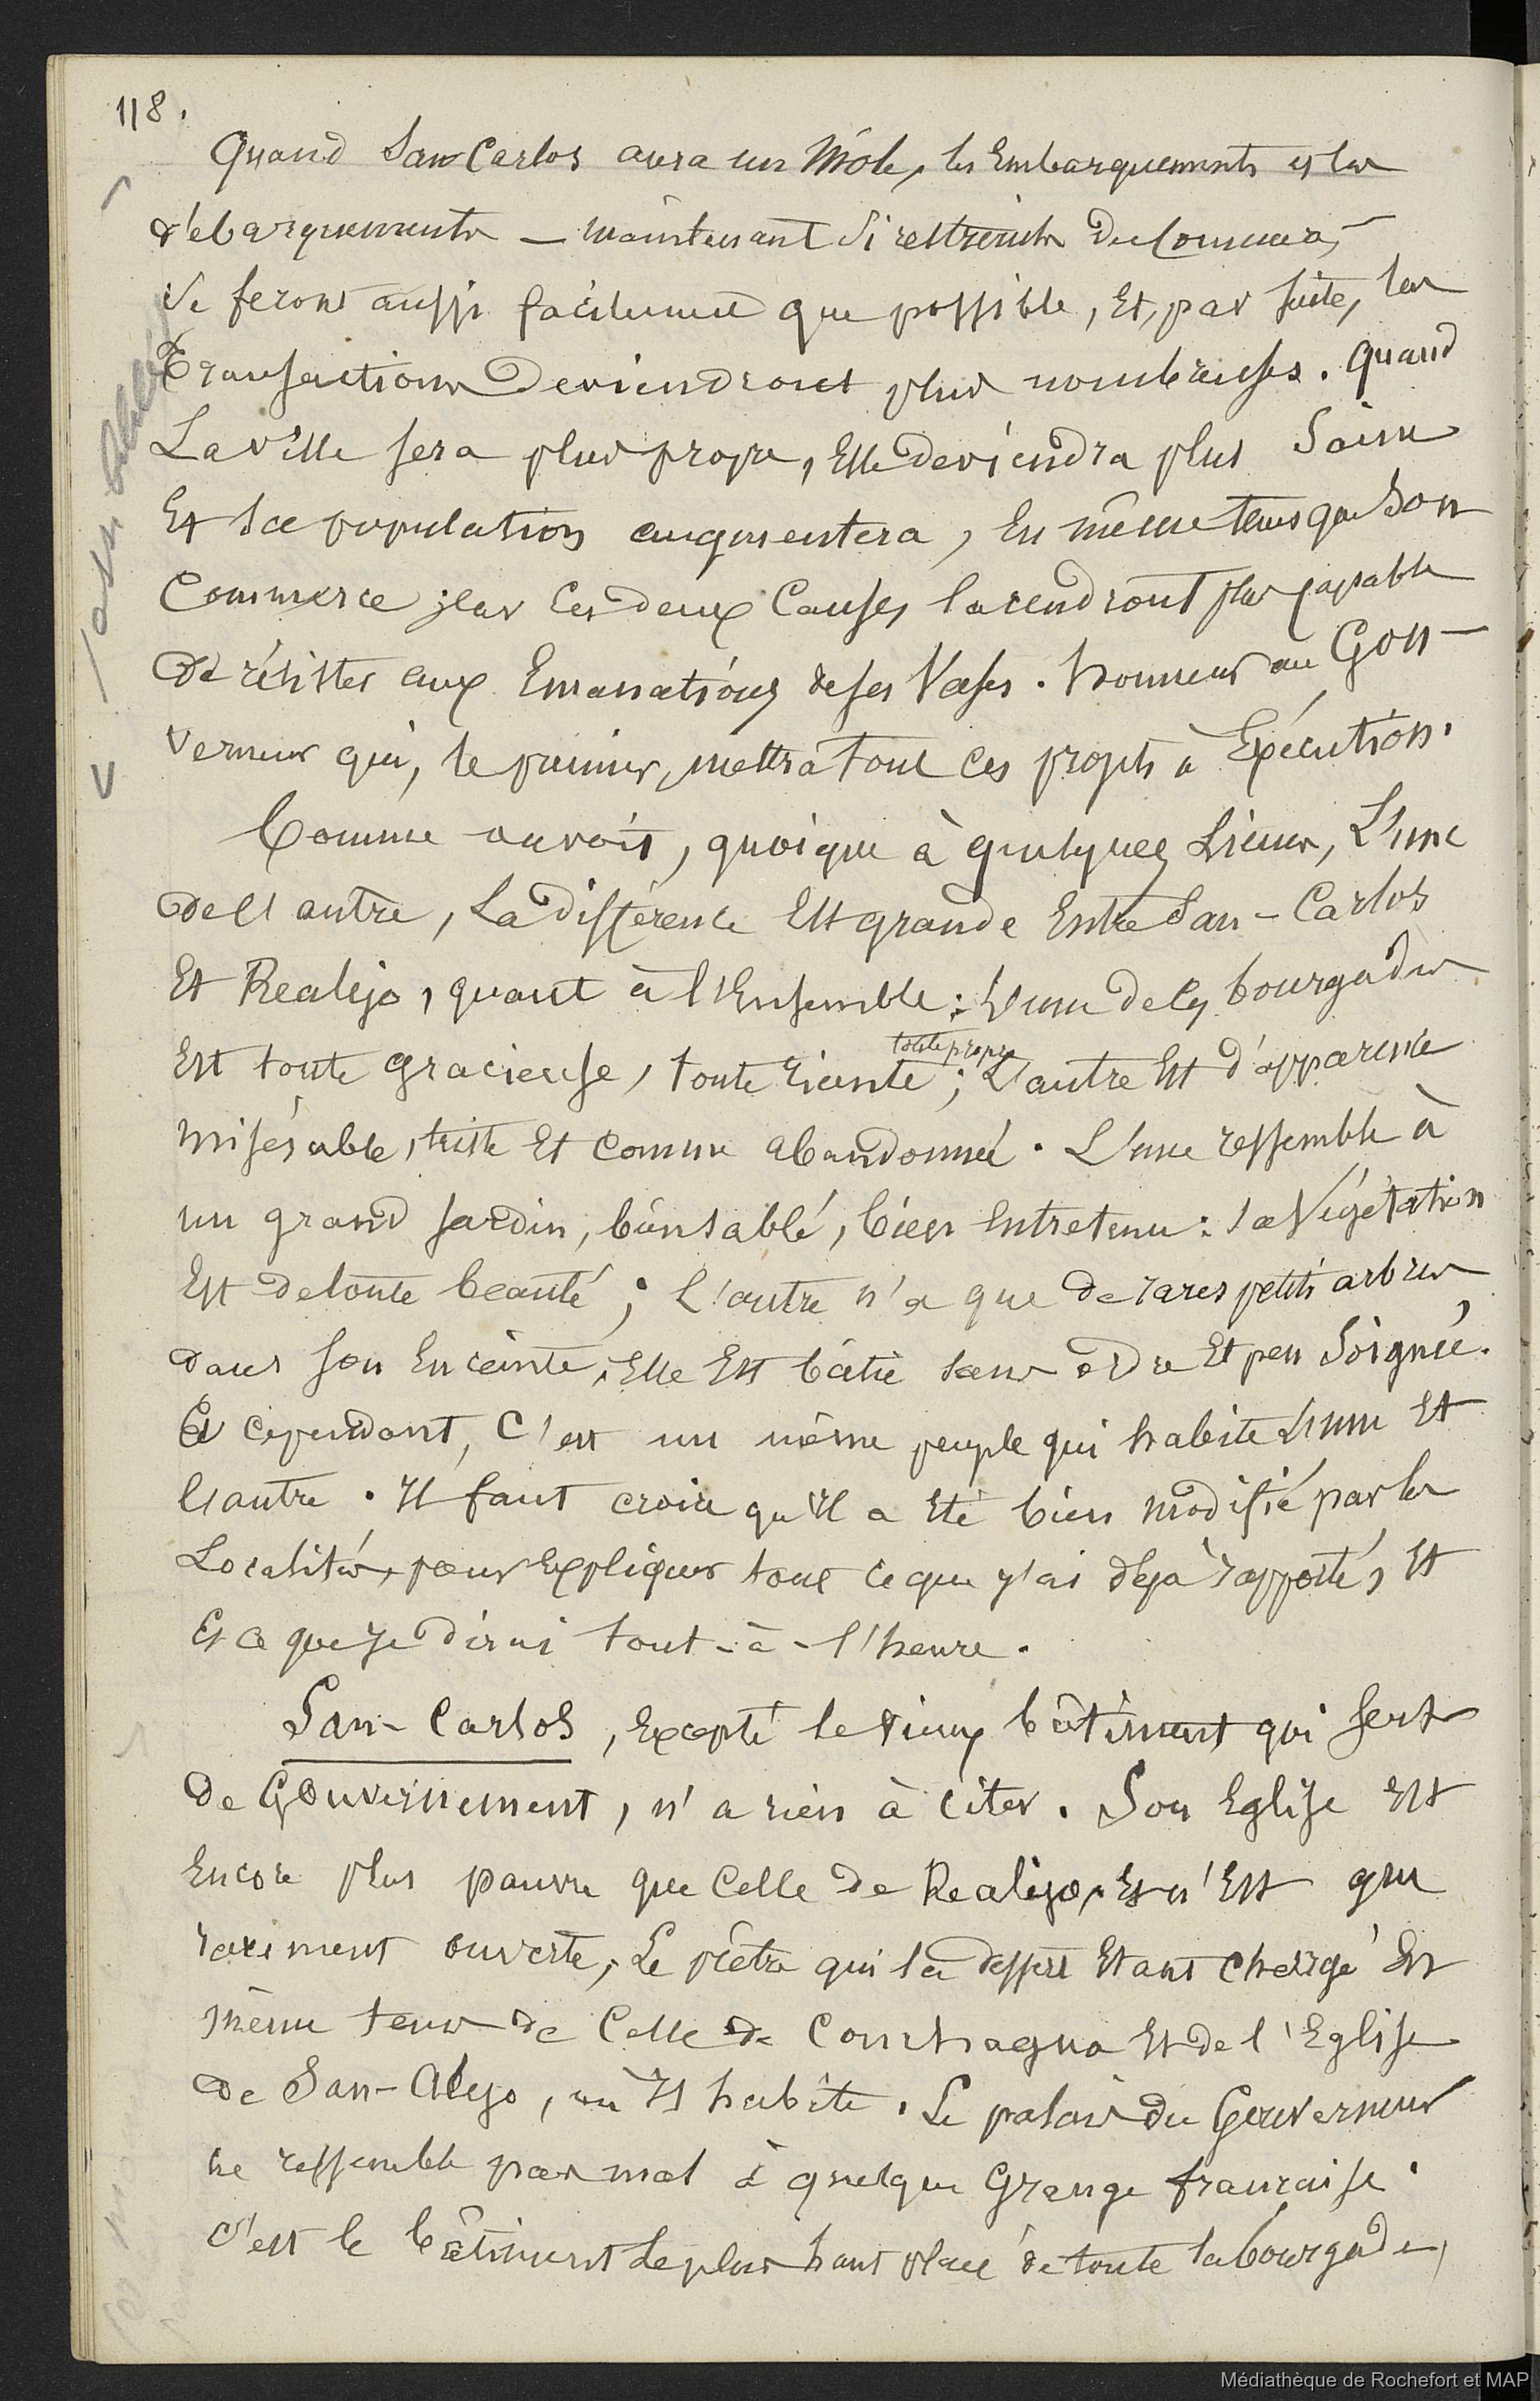 118.
Quand San Carlos aura un Môle, les Embarquements et les
débarquements — maintenant si restreints du Commerce,
se feront aussi facilement que possible, Et, par suite, les
Transactions Deviendront plus nombreuses. Quand
La ville sera plus propre, Elle deviendra plus Saine
Et sa population augmentera, En même tems que son
Commerce ; car Ces deux Causes la rendront plus capable
De résister aux Emanations de ses Vases. honneur au Gou-
verneur qui, le premier, mettra tous ces projets à Exécution.
Comme on voit, quoique à quelques Lieues, L'une
de l'autre, La différence Est grande Entre San-Carlos
Et Realejo, quant à l'Ensemble : L'une de Ces bourgades
Est toute gracieuse, toute riante ; L'autre Est d'apparence
toute propre
misérable, triste Et comme abandonnée. L'une ressemble à
un grand jardin, bien sablé, bien Entretenu : sa Végétation
Est de toute beauté ; L'autre n'a que de rares petits arbres
dans son Enceinte, Elle Est bâtie sans ordre Et peu Soignée.
Et cependant, C'est un même peuple qui habite L'une Et
l'autre. Il faut croire qu'Il a Eté bien modifié par les
Localités, pour Expliquer tout ce que j'ai déja rapporté, Et
Et ce que je dirai tout-à-l'heure.
San-Carlos, Excepté le vieux bâtiment qui sert
De Gouvernement, n'a rien à Citer. Son Eglise Est
Encore plus pauvre que Celle de Realejo, Et n'Est que
rarement ouverte, Le prêtre qui la dessert Etant chargé En
même tems de Celle de Conchagua Et de l'Eglise
De San-Alejo, où Il habite. Le palais du Gouverneur
ne ressemble pas mal à quelque Grange française.
C'est le bâtiment le plus haut placé de toute la bourgade,
Médiathèque de Rochefort et MAP